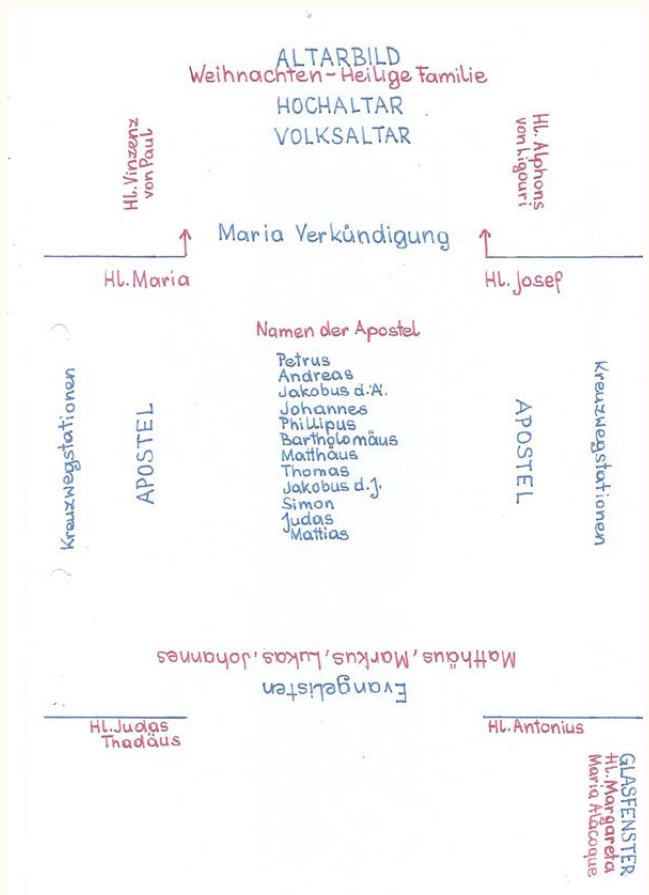 ALTARBILD
Weihnachten-Heilige Familie
HOCHALTAR
VOLKSALTAR
Hl. Vinzenz
von Paul
Hl. Alphons
von Ligouri
Maria Verkündigung
Hl. Maria
Hl. Josef
Namen der Apostel
Petrus
Andreas
Jakobus d. Ä.
Johannes
Phillipus
Bartholomäus
Matthäus
Thomas
Jakobus d. J.
Simon
Judas
Mattias
Kreuzwegstationen
APOSTEL
APOSTEL
Kreuzwegstationen
Evangelisten
Matthäus, Markus, Lukas, Johannes
Hl. Judas
Thadäus
Hl. Antonius
GLASFENSTER
Hl. Margareta
Maria Alacoque